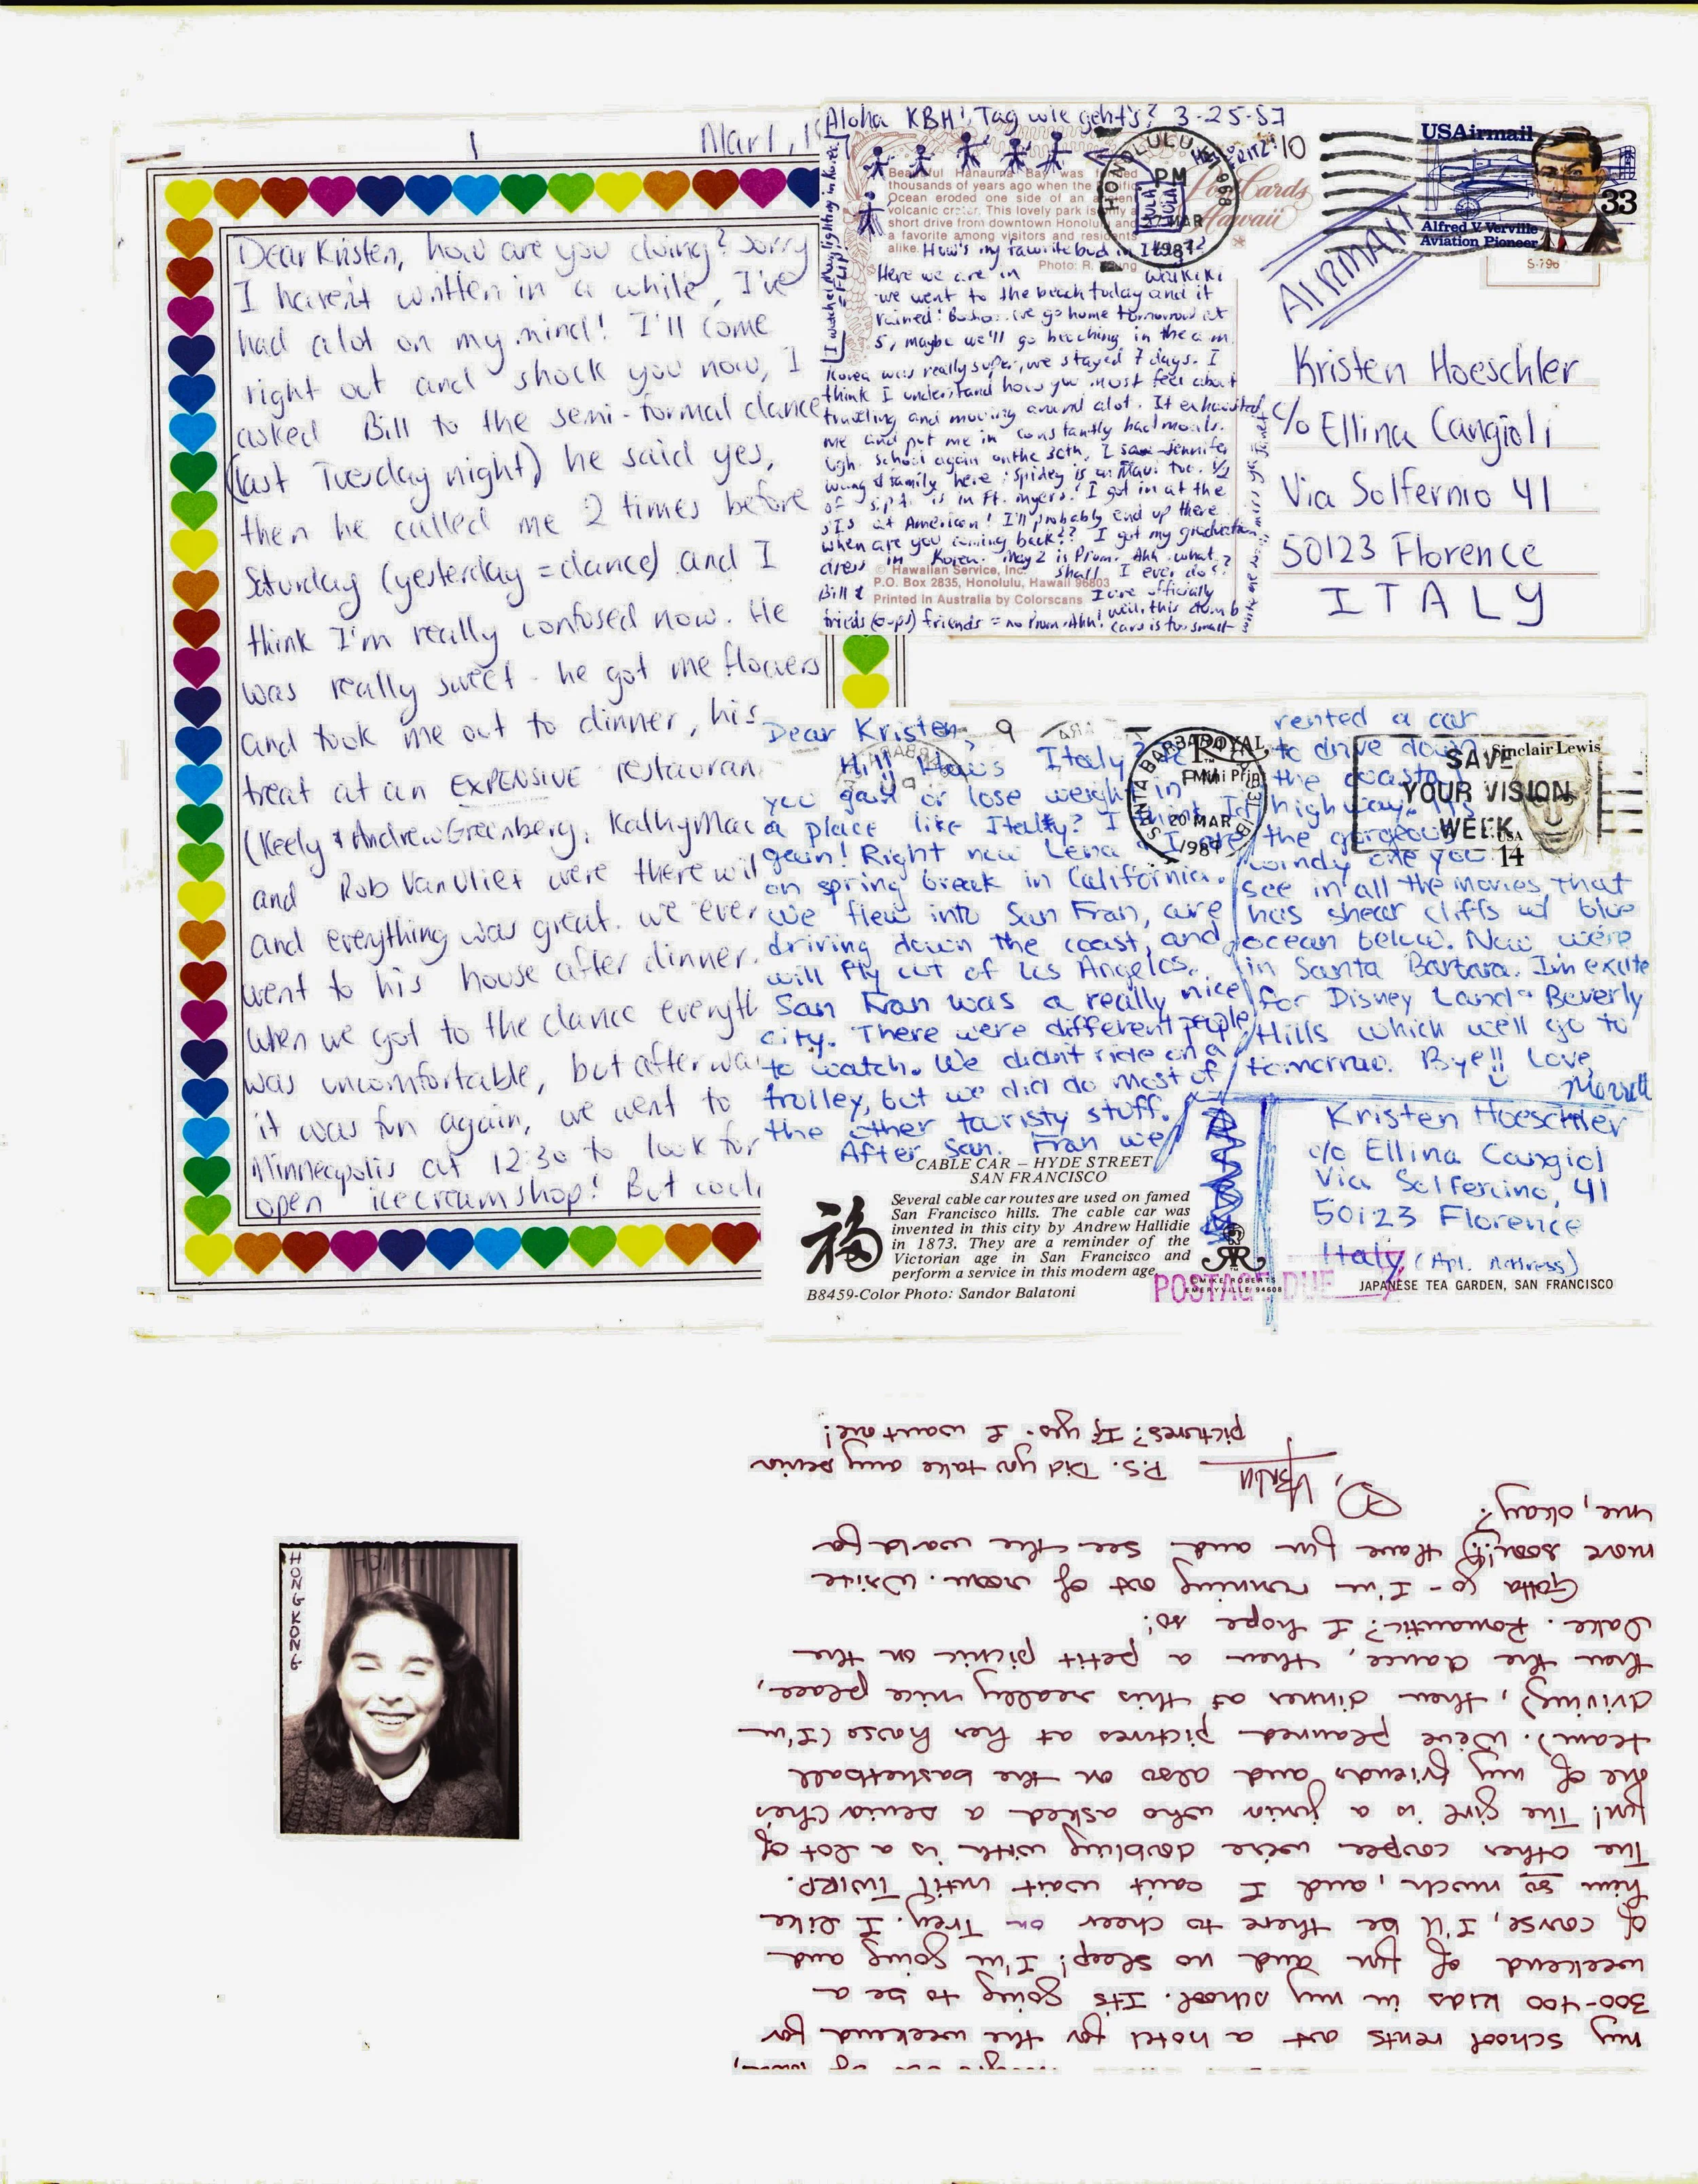 1
Mar 1, 19
Dear Kristen, how are you doing? Sorry
I haven't written in a while, I've
had alot on my mind! I'll come
right out and shock you now, I
asked Bill to the semi-formal dance
(last Tuesday night) he said yes,
then he called me 2 times before
Saturday (yesterday = dance) and I
think I'm really confused now. He
was really sweet - he got me flowers
and took me out to dinner, his
treat at an EXPENSIVE restauran
(Keely & Andrew Greenberg, Kathy Mac
and Rob VanVliet were there wit
and everything was great. we ever
went to his house after dinner.
When we got to the dance everyth
was uncomfortable, but afterwa
it was fun again, we went to
Minneapolis at 12:30 to look for
open icecream shop! But coul
Aloha KBH! Tag wie geht's? 3-25-87
I watched May fighting in Korea
Beautiful Hanauma Bay was formed
thousands of years ago when the Pacific
Ocean eroded one side of an ancient
volcanic crater. This lovely park is only a
short drive from downtown Honolulu and
a favorite among visitors and residents
alike. How's my favorite bud in Italy?
Photo: R.
Here we are in Waikiki
we went to the beach today and it
rained! we go home tomorrow at
5, maybe we'll go beaching in the a.m.
Korea was really super, we stayed 7 days. I
think I understand how you must feel about
traveling and moving around alot. It exhausted
me and put me in constantly bad moods.
Ugh. School again on the 30th, I saw Jennifer
Wang & family here! Spidey is on Maui too. 1/2
of s.p.t. is in Ft. Myers! I got in at the
SIS at American! I'll probably end up there
when are you coming back?? I got my graduation
dress in Korea. May 2 is Prom. Ahh what
shall I ever do?
© Hawaiian Service, Inc.
P.O. Box 2835, Honolulu, Hawaii 96803
Printed In Australia by Colorscans
Bill & I are officially
frieds (oops) friends = no Prom. Ahh! well, this dumb
card is too small
write me soon! miss ya
HONOLULU HI 968
PM
MAR
1987
HULA
HULA
Post Cards
Hawaii
10
USAirmail
33
Alfred V. Verville
Aviation Pioneer
S-796
AIRMAIL
Kristen Hoeschler
c/o Ellina Cangioli
Via Solfernio 41
50123 Florence
ITALY
Dear Kristen, 9
Hi!! How's Italy?
you gain or lose weight in
a place like Italy? I think I'd
gain! Right now Lena & I are
on spring break in California.
We flew into San Fran, are
driving down the coast, and
will fly out of Los Angeles.
San Fran was a really nice
city. There were different people
to watch. We didn't ride on a
trolley, but we did do most of
the other touristy stuff.
After San. Fran we
rented a car
to drive down
the coastal
highway. It's
the gorgeous
windy one you
see in all the movies that
has shear cliffs w/ blue
ocean below. Now we're
in Santa Barbara. I'm excite
for Disney Land & Beverly
Hills which we'll go to
tomorrow. Bye!! Love,
SANTA BARBARA
PM
20 MAR
1987
ROYAL
Mini Prin
SAVE
YOUR VISION
WEEK
Sinclair Lewis
USA
14
Kristen Hoeschler
c/o Ellina Cangiol
Via Solfercino, 41
50123 Florence
Italy (Apt. Address)
CABLE CAR – HYDE STREET
SAN FRANCISCO
福
Several cable car routes are used on famed
San Francisco hills. The cable car was
invented in this city by Andrew Hallidie
in 1873. They are a reminder of the
Victorian age in San Francisco and
perform a service in this modern age.
B8459-Color Photo: Sandor Balatoni
MIKE ROBERTS
EMERYVILLE 94608
POSTAGE DUE
JAPANESE TEA GARDEN, SAN FRANCISCO
HONG KONG
my school rents out a hotel for the weekend for
300-400 kids in my school. Its going to be a
weekend of fun and no sleep! I'm going and
of course, I'll be there to cheer on Trey. I like
him so much, and I can't wait until TWIRP.
The other couple we're doubling with is a lot of
fun! The girl is a junior who asked a senior (he's
one of my friends and also on the basketball
team). We've planned pictures at her house (I'm
driving), then dinner at this really nice place,
then the dance, then a petit picnic on the
Lake. Romantic? I hope so!
Gotta go - I'm running out of room. Write
more soon!! Have fun and see the world for
me, okay?
P.S. Did you take any senior
pictures? If yes - I want one!